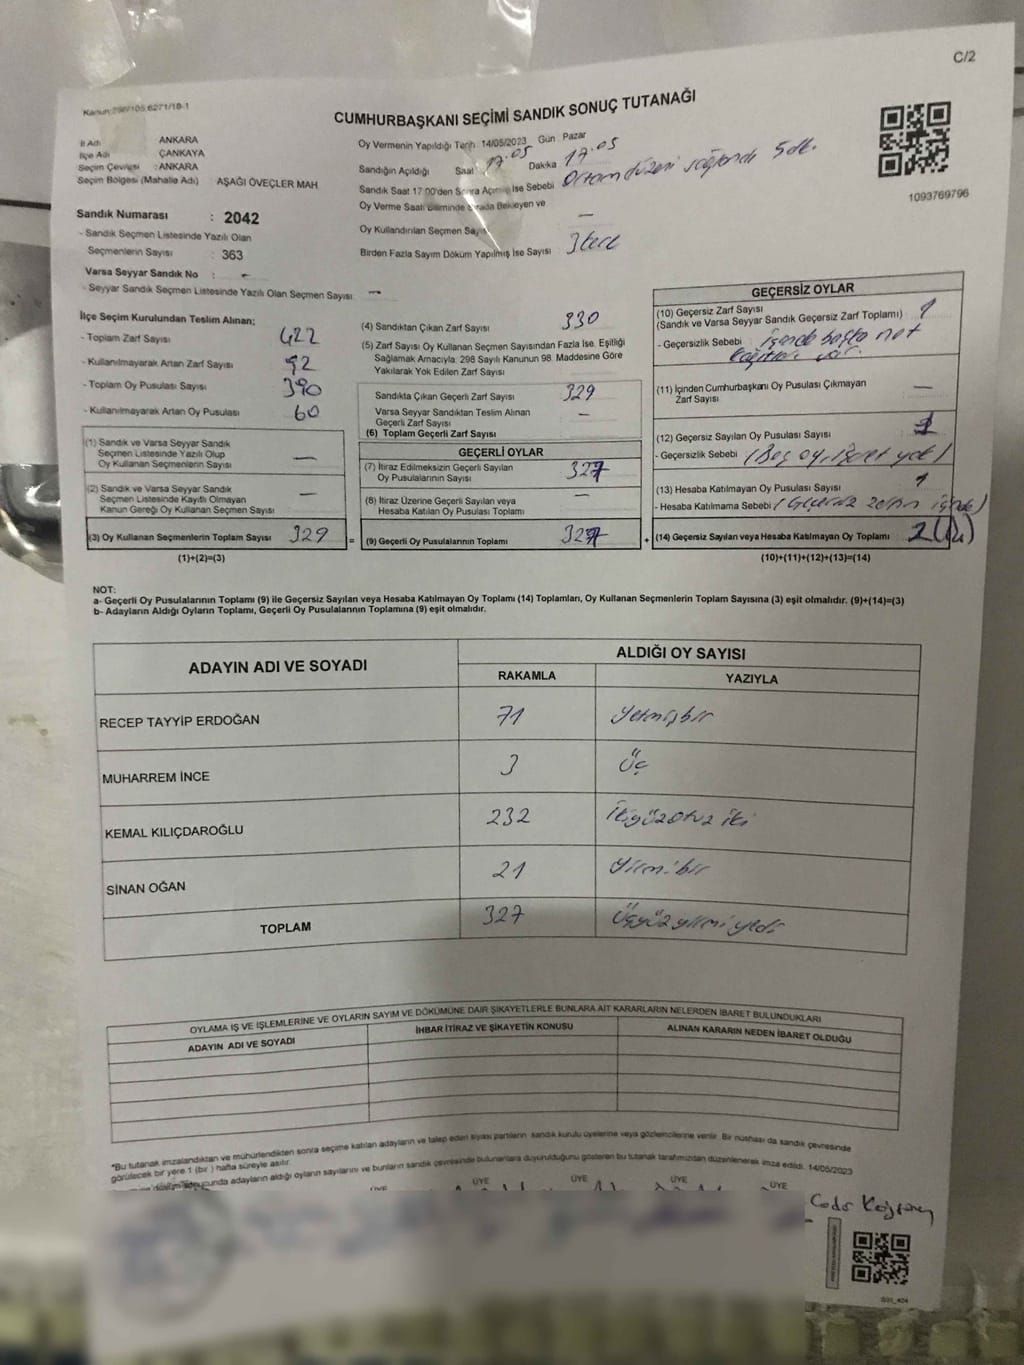 C/2
Kanun:298/105;6271/18-1
CUMHURBAŞKANI SEÇİMİ SANDIK SONUÇ TUTANAĞI
1093769796
İl Adı : ANKARA
İlçe Adı : ÇANKAYA
Seçim Çevresi : ANKARA
Seçim Bölgesi (Mahalle Adı) : AŞAĞI ÖVEÇLER MAH.
Sandık Numarası : 2042
- Sandık Seçmen Listesinde Yazılı Olan
Seçmenlerin Sayısı : 363
Varsa Seyyar Sandık No : -
- Seyyar Sandık Seçmen Listesinde Yazılı Olan Seçmen Sayısı : -
Oy Vermenin Yapıldığı Tarih 14/05/2023 Gün Pazar
Sandığın Açıldığı Saat 17.05 Dakika 17.05
Sandık Saat 17:00'den Sonra Açılmış İse Sebebi Ortam düzeni sağlandı 5 dk.
Oy Verme Saati Bitiminde Sırada Bekleyen ve
Oy Kullandırılan Seçmen Sayısı -
Birden Fazla Sayım Döküm Yapılmış İse Sayısı 3 kere
İlçe Seçim Kurulundan Teslim Alınan;
- Toplam Zarf Sayısı 422
- Kullanılmayarak Artan Zarf Sayısı 92
- Toplam Oy Pusulası Sayısı 390
- Kullanılmayarak Artan Oy Pusulası 60
(1) Sandık ve Varsa Seyyar Sandık
Seçmen Listesinde Yazılı Olup
Oy Kullanan Seçmenlerin Sayısı -
(2) Sandık ve Varsa Seyyar Sandık
Seçmen Listesinde Kayıtlı Olmayan
Kanun Gereği Oy Kullanan Seçmen Sayısı -
(3) Oy Kullanan Seçmenlerin Toplam Sayısı 329
(1)+(2)=(3)
(4) Sandıktan Çıkan Zarf Sayısı 330
(5) Zarf Sayısı Oy Kullanan Seçmen Sayısından Fazla İse, Eşitliği
Sağlamak Amacıyla; 298 Sayılı Kanunun 98. Maddesine Göre
Yakılarak Yok Edilen Zarf Sayısı
Sandıkta Çıkan Geçerli Zarf Sayısı 329
Varsa Seyyar Sandıktan Teslim Alınan
Geçerli Zarf Sayısı -
(6) Toplam Geçerli Zarf Sayısı
GEÇERLİ OYLAR
(7) İtiraz Edilmeksizin Geçerli Sayılan
Oy Pusulalarının Sayısı 327
(8) İtiraz Üzerine Geçerli Sayılan veya
Hesaba Katılan Oy Pusulası Toplamı -
= (9) Geçerli Oy Pusulalarının Toplamı 327
GEÇERSİZ OYLAR
(10) Geçersiz Zarf Sayısı
(Sandık ve Varsa Seyyar Sandık Geçersiz Zarf Toplamı) 1
- Geçersizlik Sebebi içinde başka not
kağıtları var.
(11) İçinden Cumhurbaşkanı Oy Pusulası Çıkmayan
Zarf Sayısı -
(12) Geçersiz Sayılan Oy Pusulası Sayısı 1
- Geçersizlik Sebebi (Boş oy, işaret yok)
(13) Hesaba Katılmayan Oy Pusulası Sayısı 1
- Hesaba Katılmama Sebebi (Geçersiz zarfın içinde)
+ (14) Geçersiz Sayılan veya Hesaba Katılmayan Oy Toplamı 2 (iki)
(10)+(11)+(12)+(13)=(14)
NOT:
a- Geçerli Oy Pusulalarının Toplamı (9) ile Geçersiz Sayılan veya Hesaba Katılmayan Oy Toplamı (14) Toplamları, Oy Kullanan Seçmenlerin Toplam Sayısına (3) eşit olmalıdır. (9)+(14)=(3)
b- Adayların Aldığı Oyların Toplamı, Geçerli Oy Pusulalarının Toplamına (9) eşit olmalıdır.
ADAYIN ADI VE SOYADI
ALDIĞI OY SAYISI
RAKAMLA YAZIYLA
RECEP TAYYİP ERDOĞAN 71 Yetmişbir
MUHARREM İNCE 3 Üç
KEMAL KILIÇDAROĞLU 232 İkiyüzotuz iki
SİNAN OĞAN 21 Yirmibir
TOPLAM 327 Üçyüzyirmiyedi
OYLAMA İŞ VE İŞLEMLERİNE VE OYLARIN SAYIM VE DÖKÜMÜNE DAİR ŞİKAYETLERLE BUNLARA AİT KARARLARIN NELERDEN İBARET BULUNDUKLARI
ADAYIN ADI VE SOYADI İHBAR İTİRAZ VE ŞİKAYETİN KONUSU ALINAN KARARIN NEDEN İBARET OLDUĞU
*Bu tutanak imzalandıktan ve mühürlendikten sonra seçime katılan adayların ve talep eden siyasi partilerin sandık kurulu üyelerine veya gözlemcilerine verilir. Bir nüshası da sandık çevresinde
görülecek bir yere 1 (bir) hafta süreyle asılır.
döküm sonucunda adayların aldığı oyların sayılarını ve bunların sandık çevresinde bulunanlara duyurulduğunu gösteren bu tutanak tarafımızdan düzenlenerek imza edildi. 14/05/2023
ÜYE ÜYE ÜYE ÜYE ÜYE